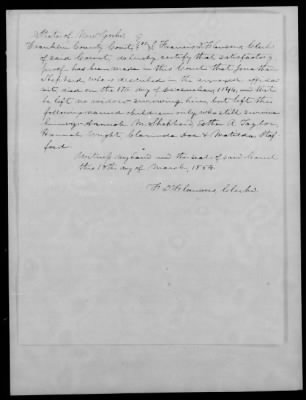 State of New York
Franklin County Court, I Francis D Flanders Clerk
of said Court, do hereby certify that satisfactory
proof has been made in this Court that Jonathan
Shephard who is described in the annexed affida
vit, died on the 18th day of 1844, and that
he left no widow surviving him but left the
following named children only who still survive
him viz Hannah Shephard, Esther A. Taylor,
Hannah Wright, Clarinda & Matilda Staf
ford.
Witness my hand and the seal of said Court
this 18th day of March, 1854.
F. D. Flanders, Clerk.